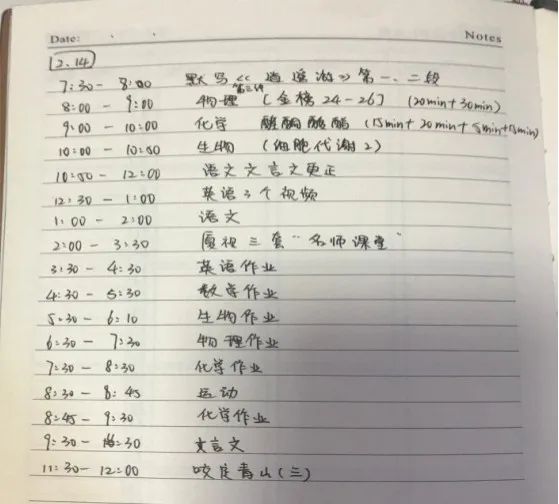 Date:
Notes
2.14
7:30 - 8:00 默写《逍遥游》第一、二段
第三段
8:00 - 9:00 物理 (金榜24-26) (20min+30min)
9:00 - 10:00 化学 醛酮酸酯 (15min+20min+5min+15min)
10:00 - 10:50 生物 (细胞代谢2)
10:50 - 12:00 语文文言文更正
12:30 - 1:00 英语3个视频
1:00 - 2:00 语文
2:00 - 3:30 厦视三套"名师课堂"
3:30 - 4:30 英语作业
4:30 - 5:30 数学作业
5:30 - 6:10 生物作业
6:30 - 7:30 物理作业
7:30 - 8:30 化学作业
8:30 - 8:45 运动
8:45 - 9:30 化学作业
9:30 - :30 文言文
11:30 - 12:00 咬定青山(三)